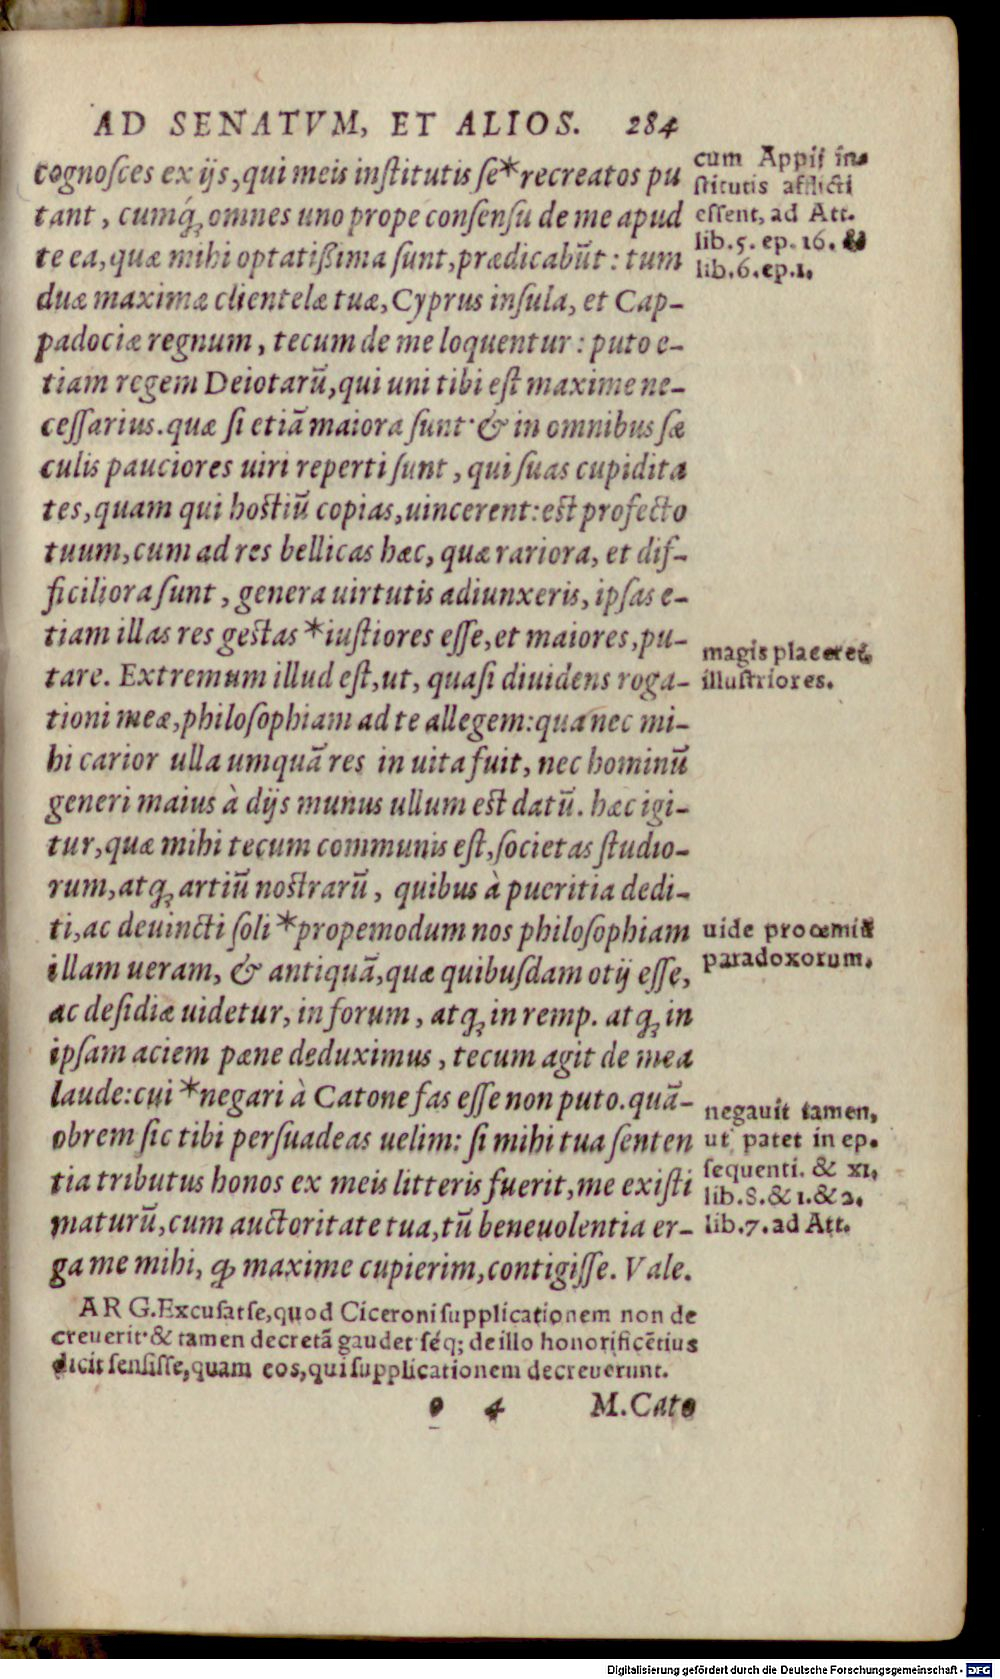 AD SENATVM, ET ALIOS. 284
cognoſces ex ijs, qui meis inſtitutis ſe*recreatos pu
tant, cumq́; omnes uno prope conſenſu de me apud
te ea, quæ mihi optatißima ſunt, prædicabūt: tum
duæ maximæ clientelæ tuæ, Cyprus inſula, et Cap-
padociæ regnum, tecum de me loquentur: puto e-
tiam regem Deiotarū, qui uni tibi eſt maxime ne-
ceſſarius. quæ ſi etiā maiora ſunt· & in omnibus ſæ
culis pauciores uiri reperti ſunt, qui ſuas cupidita
tes, quam qui hoſtiū copias, uincerent: eſt profecto
tuum, cum ad res bellicas hæc, quæ rariora, et dif-
ficiliora ſunt, genera uirtutis adiunxeris, ipſas e-
tiam illas res geſtas *iuſtiores eſſe, et maiores, pu-
tare. Extremum illud eſt, ut, quaſi diuidens roga-
tioni meæ, philoſophiam ad te allegem: qua nec mi-
hi carior ulla umquā res in uita fuit, nec hominū
generi maius à dijs munus ullum eſt datū. hæc igi-
tur, quæ mihi tecum communis eſt, ſocietas ſtudio-
rum, atq; artiū noſtrarū, quibus à pueritia dedi-
ti, ac deuincti ſoli *propemodum nos philoſophiam
illam ueram, & antiquā, quæ quibuſdam otij eſſe,
ac deſidiæ uidetur, in forum, atq; in remp. atq; in
ipſam aciem pæne deduximus, tecum agit de mea
laude: cui *negari à Catone fas eſſe non puto. quā-
obrem ſic tibi perſuadeas uelim: ſi mihi tua ſenten
tia tributus honos ex meis litteris fuerit, me exiſti
maturū, cum auctoritate tua, tū beneuolentia er-
ga me mihi, ꝙ maxime cupierim, contigiſſe. Vale.
cum Appij in-
ſtitutis afflicti
eſſent, ad Att.
lib. 5. ep. 16. &
lib. 6. ep. 1.
magis placeret,
illuſtriores.
uide procemiū
paradoxorum.
negauit tamen,
ut patet in ep.
ſequenti. & XI.
lib. 8. & 1. & 2.
lib. 7. ad Att.
ARG. Excuſat ſe, quod Ciceroni ſupplicationem non de
creuerit· & tamen decretā gaudet ſéq; de illo honorificētius
dicit ſenſiſſe, quam eos, qui ſupplicationem decreuerunt.
o 4 M. Cato
Digitalisierung gefördert durch die Deutsche Forschungsgemeinschaft - DFG